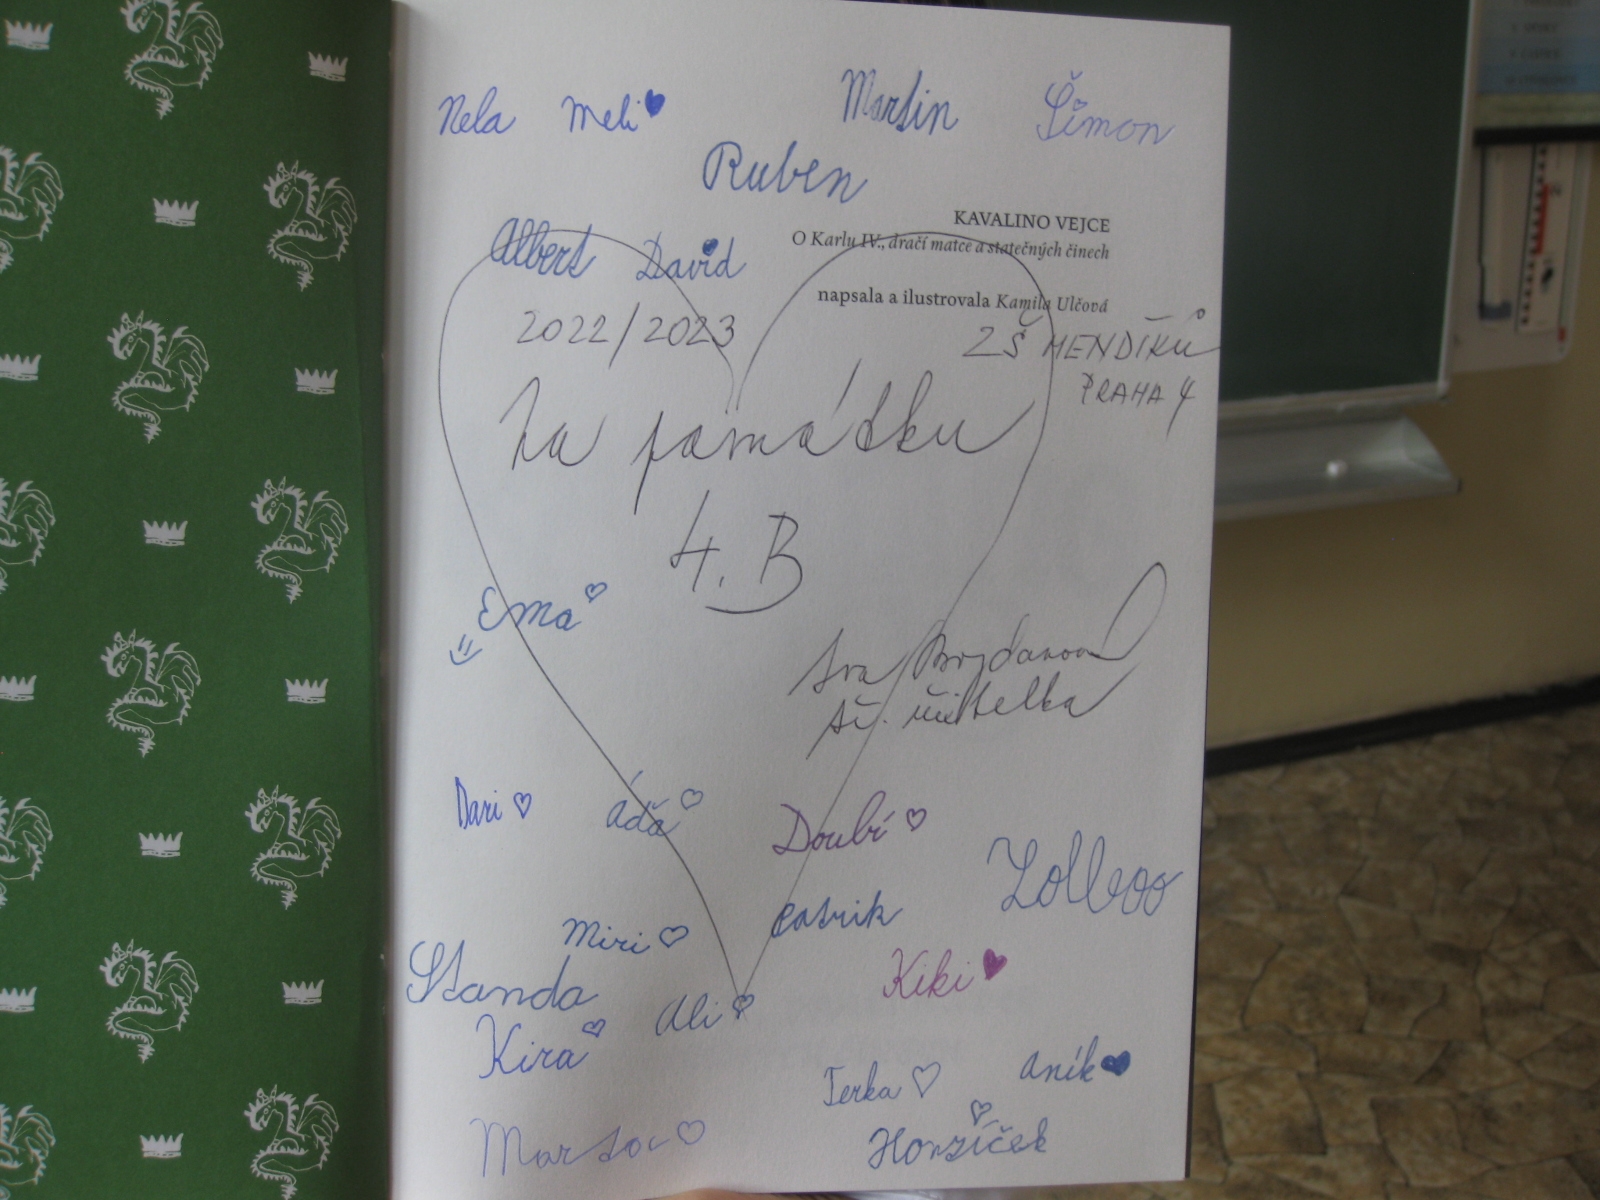 Nela Meli Martin Šimon
Ruben
KAVALINO VEJCE
O Karlu IV., dračí matce a statečných činech
Albert David
napsala a ilustrovala Kamila Ulčová
2022/2023
ZŠ MENDÍKŮ
PRAHA 4
Na památku
4. B
Ema
tř. učitelka
Dari Áďa Doubí
Miri Patrik
Standa Kiki
Kira Ali
Terka Aník
Honzíček